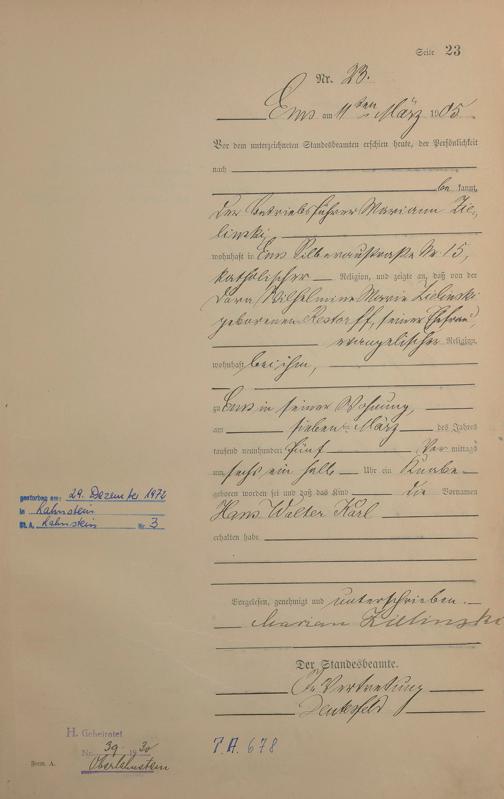 Seite 23
Nr. 23.
Ems am 11ten März 1905
Vor dem unterzeichneten Standesbeamten erschien heute, der Persönlichkeit
nach
be kannt,
der Betriebsführer Mariann Zie-
linski
wohnhaft in Ems Silberaustraße Nr. 15,
katholischer Religion, und zeigte an, daß von der
Dora Wilhelmine Marie Zielinski
geborenen Restorff, seiner Ehefrau,
evangelischer Religion,
wohnhaft bei ihm,
zu Ems in seiner Wohnung,
am sieben ten März des Jahres
tausend neunhundert fünf Vor mittags
um sechs ein halb Uhr ein Knabe
geboren worden sei und daß das Kind die Vornamen
Hans Walter Karl
erhalten habe.
Vorgelesen, genehmigt und unterschrieben.
Marian Zielinski
Der Standesbeamte.
In Vertretung
gestorben am: 29. Dezember 1972
in Lahnstein
St. A. Lahnstein Nr 3
H. Geheiratet
Nr. 39 1930
Oberlahnstein
Form. A.
T. A. 678